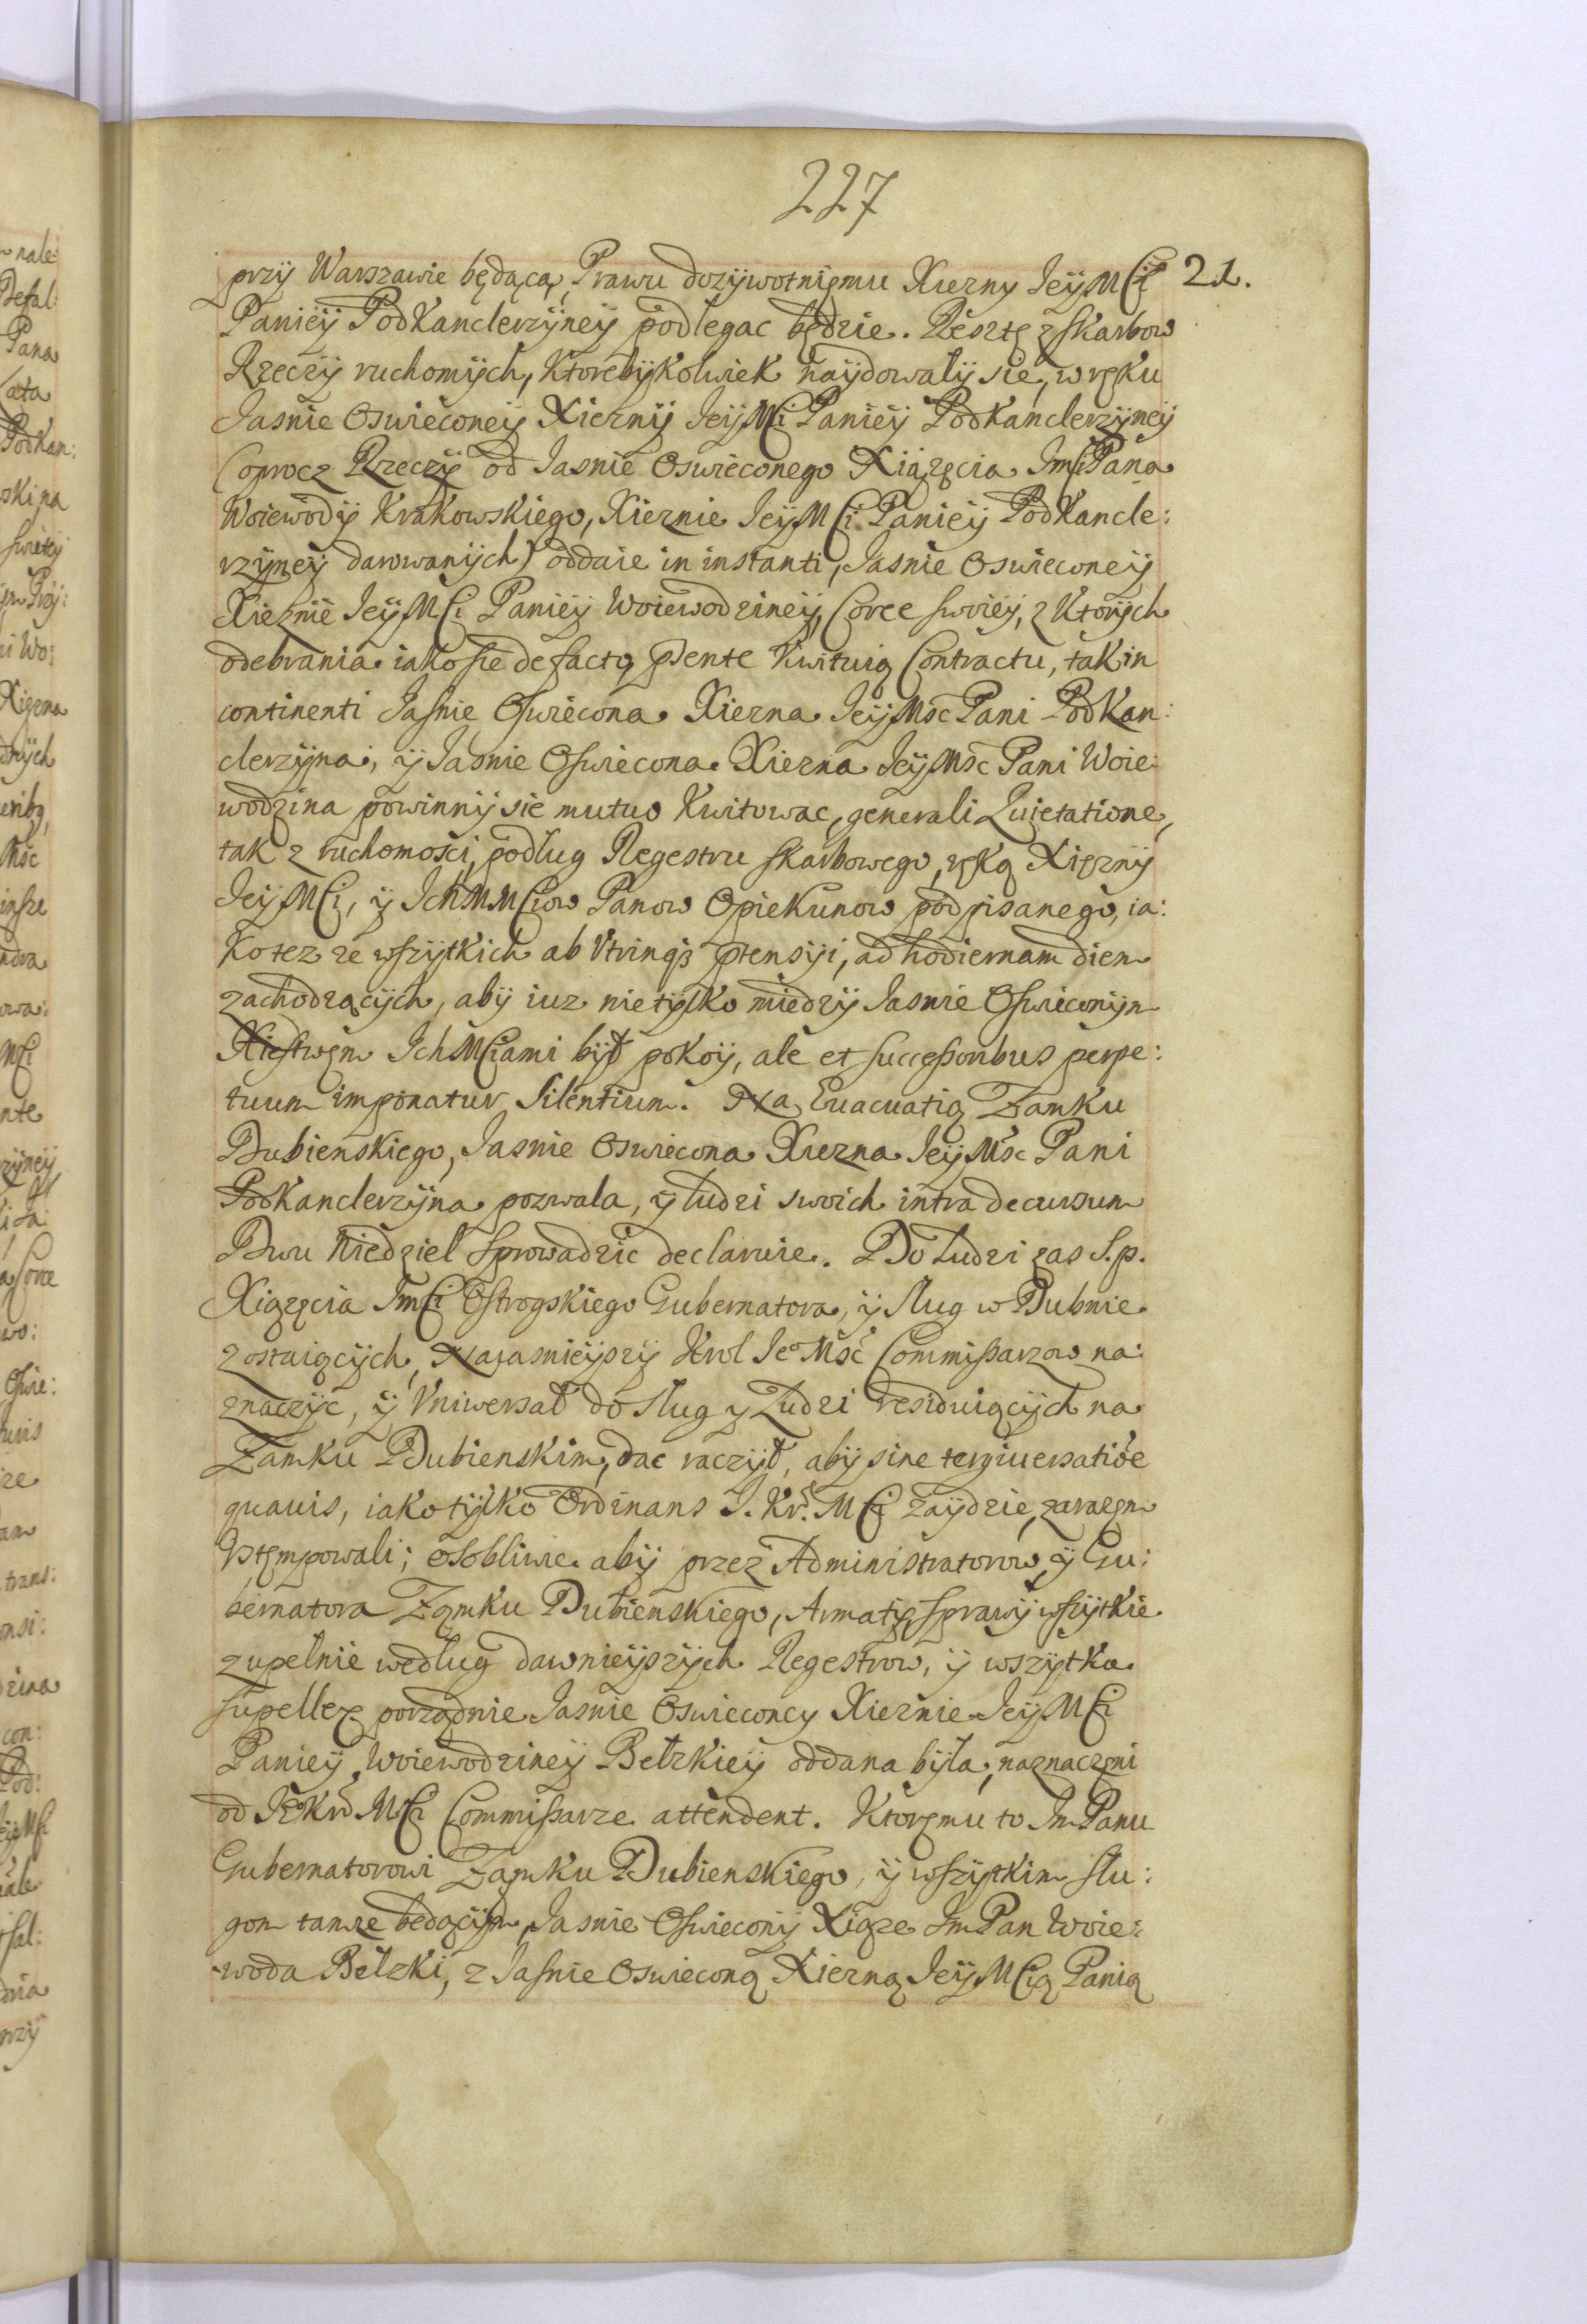 227
przÿ Warszawie będącą, Prawu dozÿwotnięmu Xięzny JeÿMCi 21.
Panieÿ PodKanclerzÿneÿ podlegac będzie. Resztę z skarbow
Rzeczÿ ruchomÿch, KtorebÿKolwiek naÿdowalÿ sie, w ręku
Jasnie Oswieconeÿ Xieznÿ JeÿMCi Panieÿ PodKanclerzÿneÿ
(oprocz Rzeczÿ od Jasnie Oswieconego Xiążęcia JmCi Pana
Woiewodÿ Krakowskiego, Xieznie JeÿMCi Panieÿ PodKancle:
rzÿneÿ darowanÿch) oddaie in instanti, Jasnie Oswieconeÿ
Xieznie JeÿMCi Panieÿ Woiewodzineÿ, Corce swoieÿ, z Ktorÿch
odebrania iako sie de facto pñte Kwituią Contractu, tak in
continenti Jasnie Oswiecona Xiezna JeÿMsc Pani PodKan:
clerzÿna, ÿ Jasnie Oswiecona Xiezna JeÿMsc Pani Woie:
wodzina powinnÿ sie mutuo Kwitowac, generali Quietatione,
tak z ruchomosci, podlug Regestru skarbowego, ręką Xięznÿ
JeÿMCi, ÿ IchMMCiow Panow OpieKunow podpisanego, ia:
Ko tez ze wszÿtkich ab Vtrinqʒ ptensÿi, ad hodiernam diem
zachodzącÿch, abÿ iuz nie tÿlko miedzÿ Jasnie Oswieconÿm
Xięstwęm IchMCiami bÿł poKoÿ, ale et successoribus perpe:
tuum imponatur silentium. Na Euacuatią Zamku
Dubienskiego, Jasnie Oswiecona Xiezna JeÿMsc Pani
PodKanclerzÿna pozwala, ÿ ludzi swoich intra decursum
Dwu Niedziel sprowadzic declaruie. Do Ludzi zas S. p.
Xiążęcia JmCi Ostrogskiego Gubernatora, ÿ Sług w Dubnie
zostaiącÿch, Naiasnieÿszÿ Krol JeoMsć Commissarzow na:
znaczÿc, ÿ Vniwersał do sług y Ludzi residuiącÿch na
Zamku Dubienskim, dac raczÿł, abÿ sine tergiuersatioe
quauis, iako tÿlko Ordinans J. Kr. MCi zaÿdzie, zarazęm
Vstęmpowali; osobliwie abÿ przez Administratorow, ÿ Gu:
bernatora Zamku Dubienskiego, Armatę, sprawÿ wszÿtkie
zupelnie według dawnieÿszÿch Regestrow, ÿ wszÿtka
supellex porządnie Jasnie Oswieconcy Xieżnie JeÿMCi
Panieÿ Woiewodzineÿ Bełzkieÿ oddana bÿła, naznaczeni
od JeoKr MCi Commissarze attendent. Ktoręmu to Jm Panu
Gubernatorowi Zamku Dubienskiego, ÿ wszÿtkim słu:
gom tamze bedącÿm, Jasnie Oswieconÿ Xiąze Jm Pan Woie:
woda Bełzki, z Jasnie Oswieconą Xiezną JeÿMCią Panią